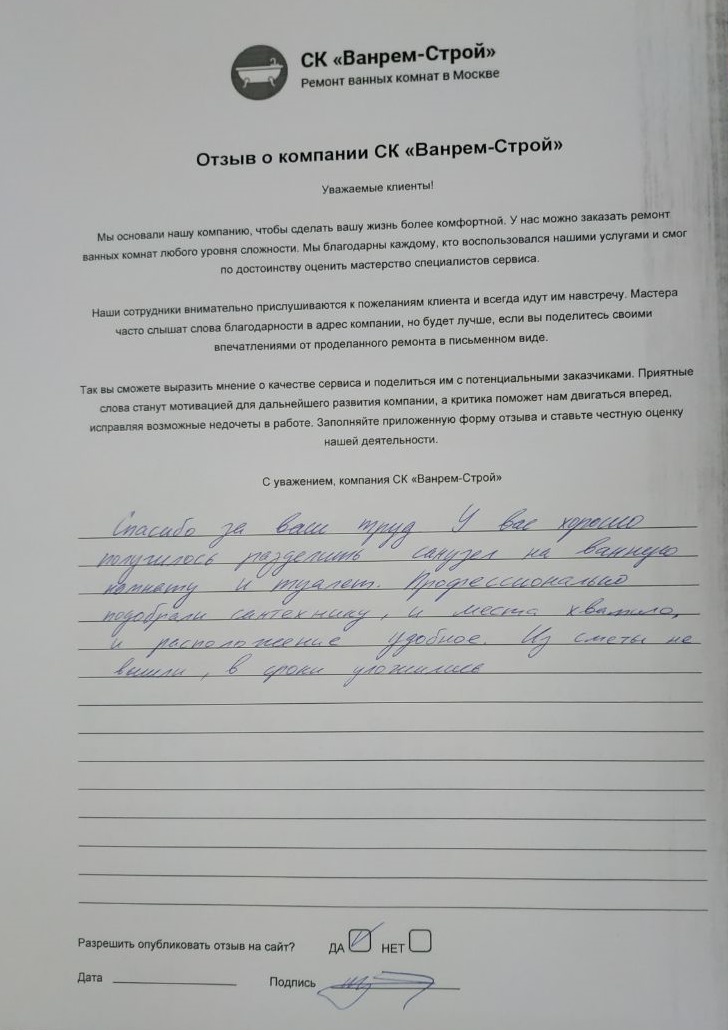 СК «Ванрем-Строй»
Ремонт ванных комнат в Москве
Отзыв о компании СК «Ванрем-Строй»
Уважаемые клиенты!
Мы основали нашу компанию, чтобы сделать вашу жизнь более комфортной. У нас можно заказать ремонт
ванных комнат любого уровня сложности. Мы благодарны каждому, кто воспользовался нашими услугами и смог
по достоинству оценить мастерство специалистов сервиса.
Наши сотрудники внимательно прислушиваются к пожеланиям клиента и всегда идут им навстречу. Мастера
часто слышат слова благодарности в адрес компании, но будет лучше, если вы поделитесь своими
впечатлениями от проделанного ремонта в письменном виде.
Так вы сможете выразить мнение о качестве сервиса и поделиться им с потенциальными заказчиками. Приятные
слова станут мотивацией для дальнейшего развития компании, а критика поможет нам двигаться вперед,
исправляя возможные недочеты в работе. Заполняйте приложенную форму отзыва и ставьте честную оценку
нашей деятельности.
С уважением, компания СК «Ванрем-Строй»
Спасибо за ваш труд. У вас хорошо
получилось разделить санузел на ванную
комнату и туалет. Профессионально
подобрали сантехнику, и места хватило,
и расположение удобное. Из сметы не
вышли, в сроки уложились
Разрешить опубликовать отзыв на сайт? ДА НЕТ
Дата Подпись